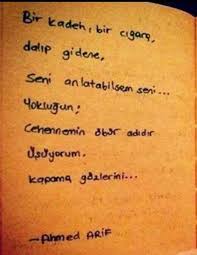 Bir kadeh, bir cıgara,
dalıp gidene,
Seni anlatabilsem seni...
Yokluğun;
Cehennemin öbür adıdır
Üşüyorum.
Kapama gözlerini...
—Ahmed ARİF